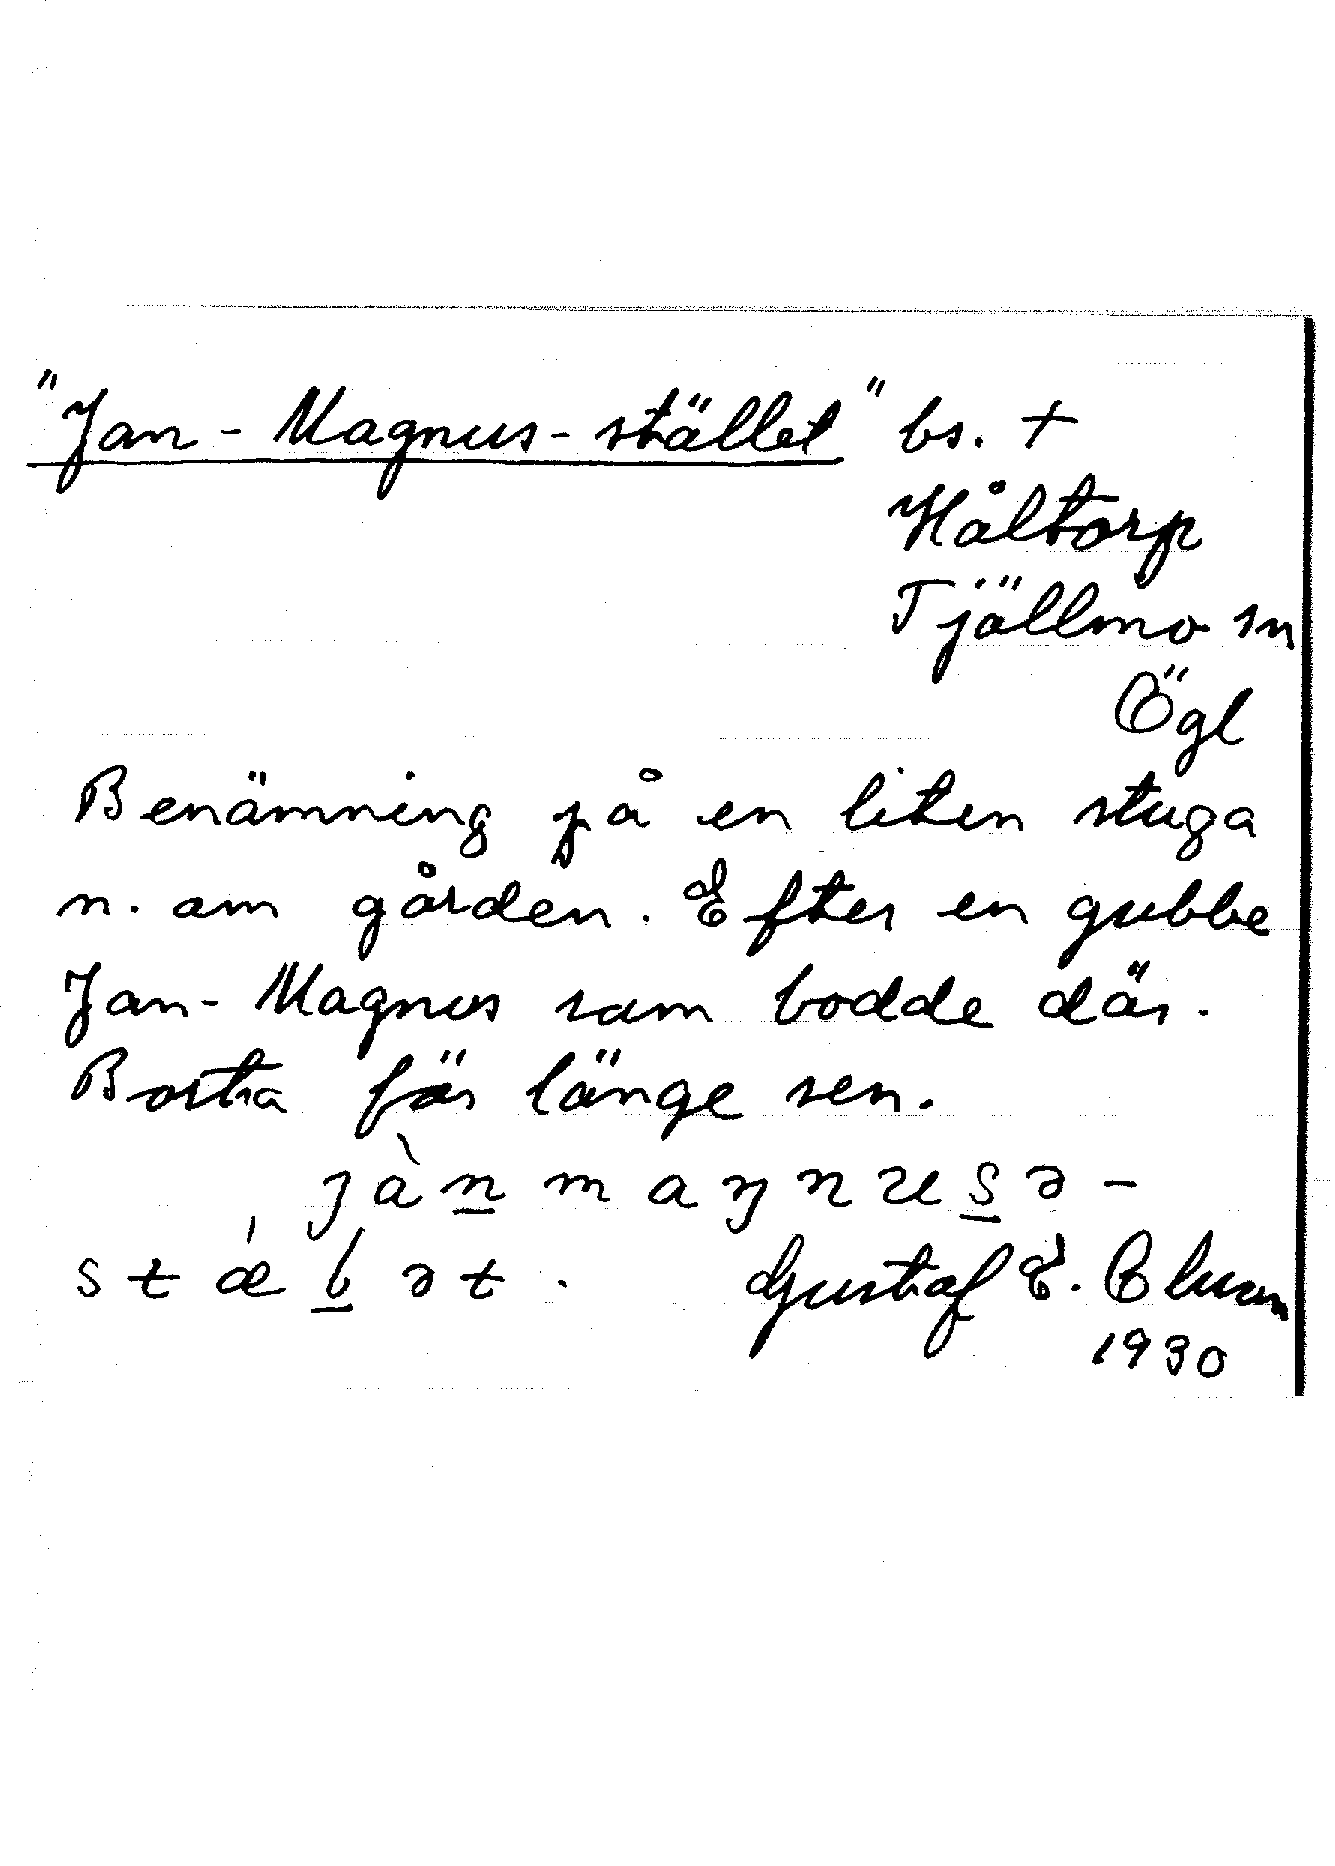 "Jan-Magnus-stället" bs. +
Håltorp
Tjällmo sn
Ögl
Benämning på en liten stuga
n. om gården. Efter en gubbe
Jan-Magnus som bodde där.
Borta för länge sen.
Gustaf E. Blum
1930